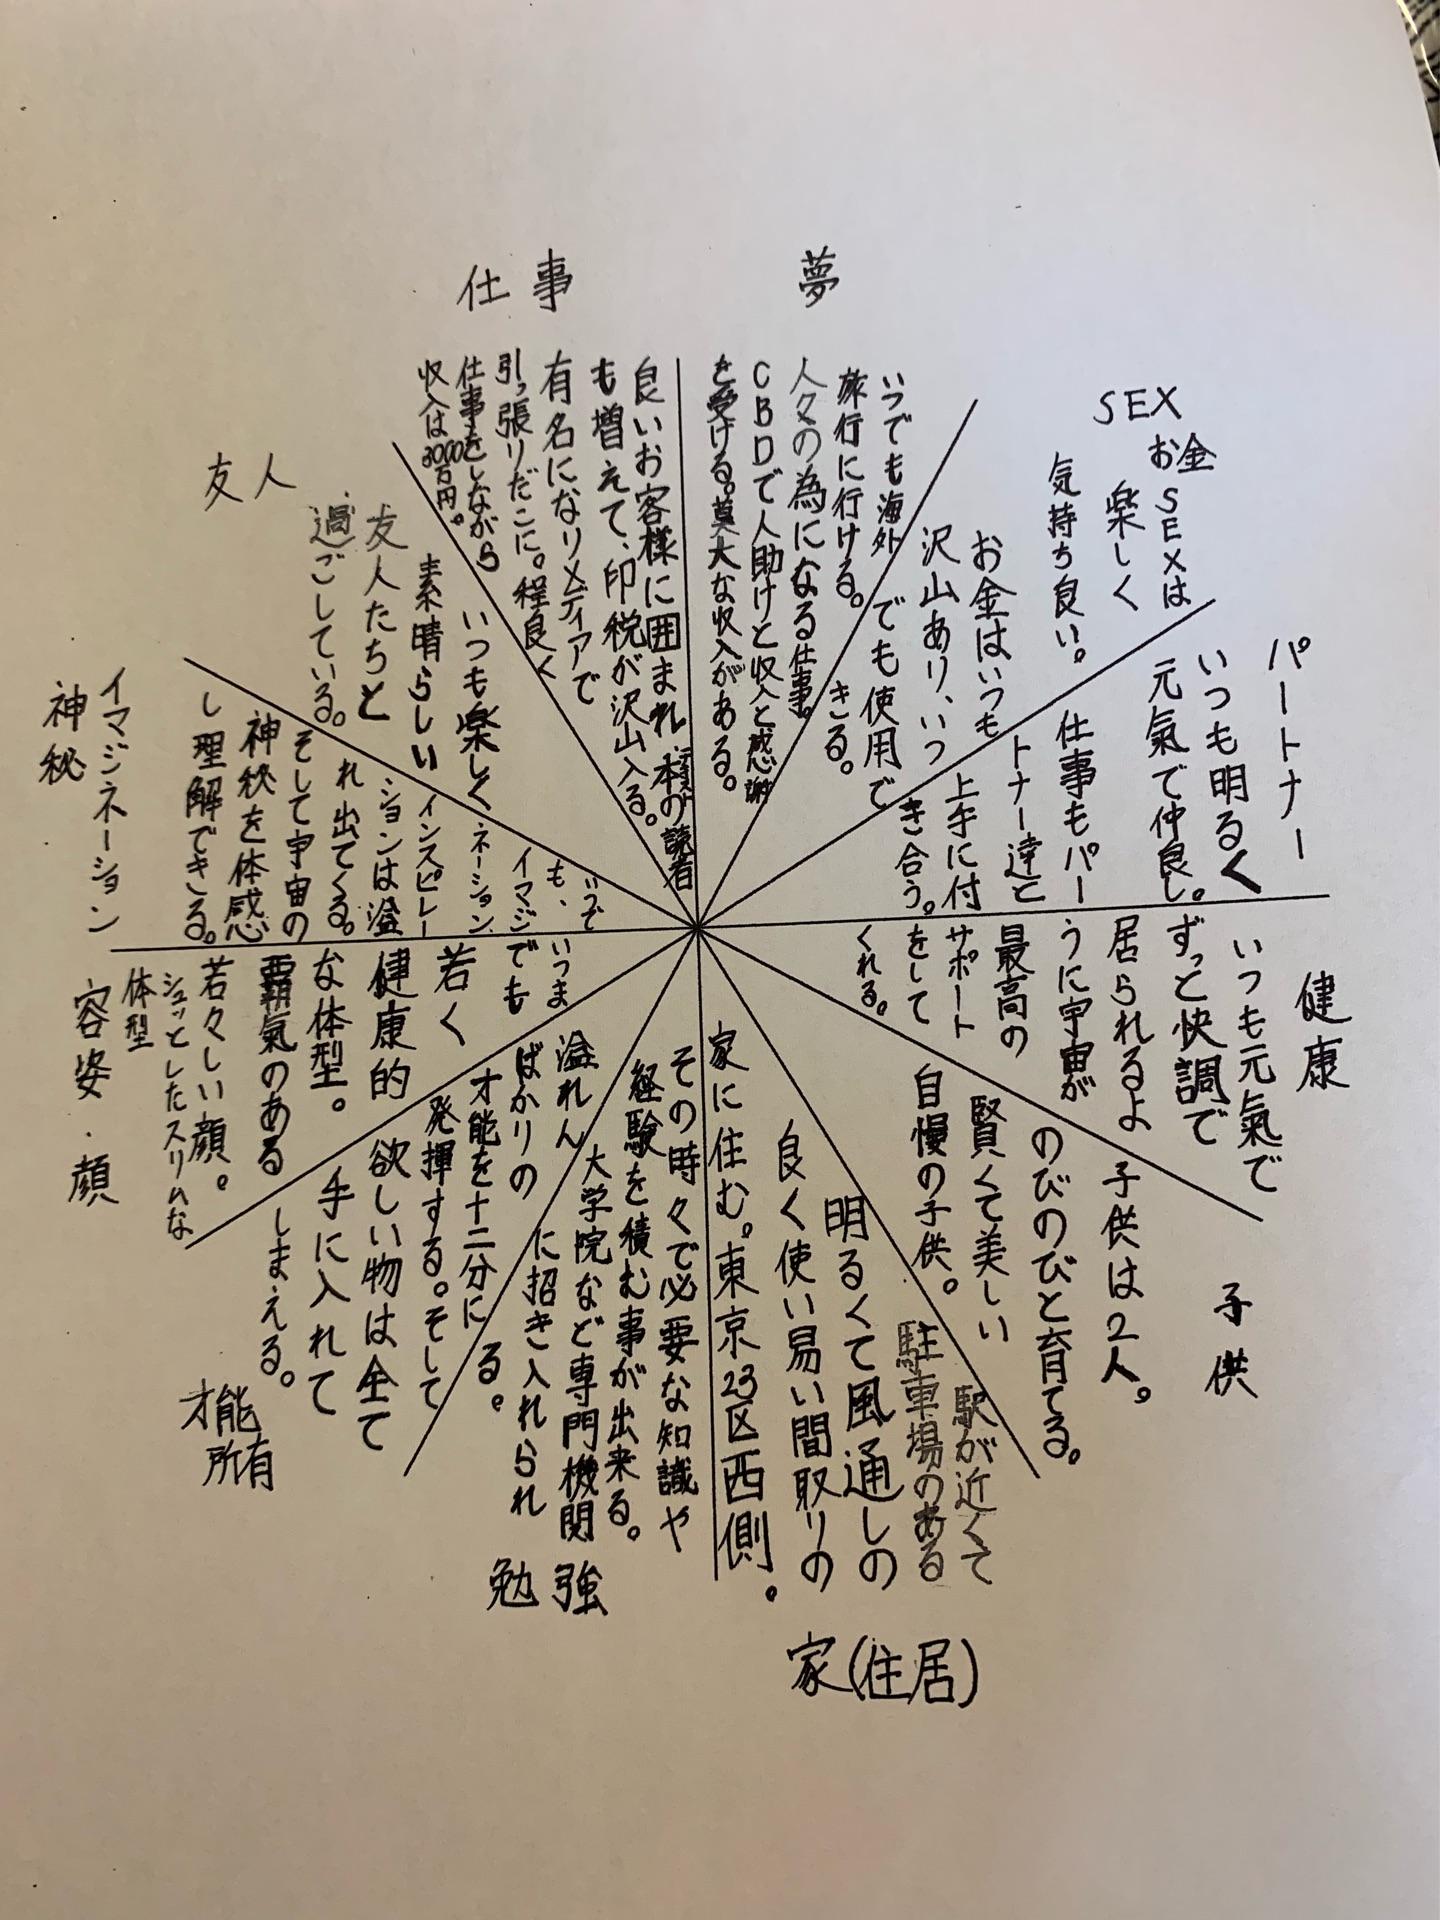 夢
いつでも海外
旅行に行ける。
人々の為になる仕事。
CBDで人助けと収入と感謝
を受ける。莫大な収入がある。
SEX
お金
SEXは
楽しく
気持ち良い。
お金はいつも
沢山あり、いつ
でも使用で
きる。
パートナー
いつも明るく
元氣で仲良し。
仕事もパー
トナー達と
上手に付
き合う。
健康
いつも元氣で
ずっと快調で
居られるよ
うに宇宙が
最高の
サポート
をして
くれる。
子供
子供は2人。
のびのびと育てる。
賢くて美しい
自慢の子供。
家(住居)
駅が近くて
駐車場のある
明るくて風通しの
良く使い易い間取りの
家に住む。東京23区西側。
勉強
その時々で必要な知識や
経験を積む事が出来る。
大学院など専門機関
に招き入れられ
る。
才能
所有
溢れん
ばかりの
才能を十二分に
発揮する。そして
欲しい物は全て
手に入れて
しまえる。
容姿・顔
いつま
でも
若く
健康的
な体型。
覇氣のある
若々しい顔。
シュッとしたスリムな
体型
イマジネーション
神秘
いつで
も、
イマジ
ネーション、
インスピレー
ションは溢
れ出てくる。
そして宇宙の
神秘を体感
し理解できる。
友人
いつも楽しく
素晴らしい
友人たちと
過ごしている。
仕事
良いお客様に囲まれ、本の読者
も増えて、印税が沢山入る。
有名になりメディアで
引っ張りだこに。程良く
仕事をしながら
収入は3000万円。